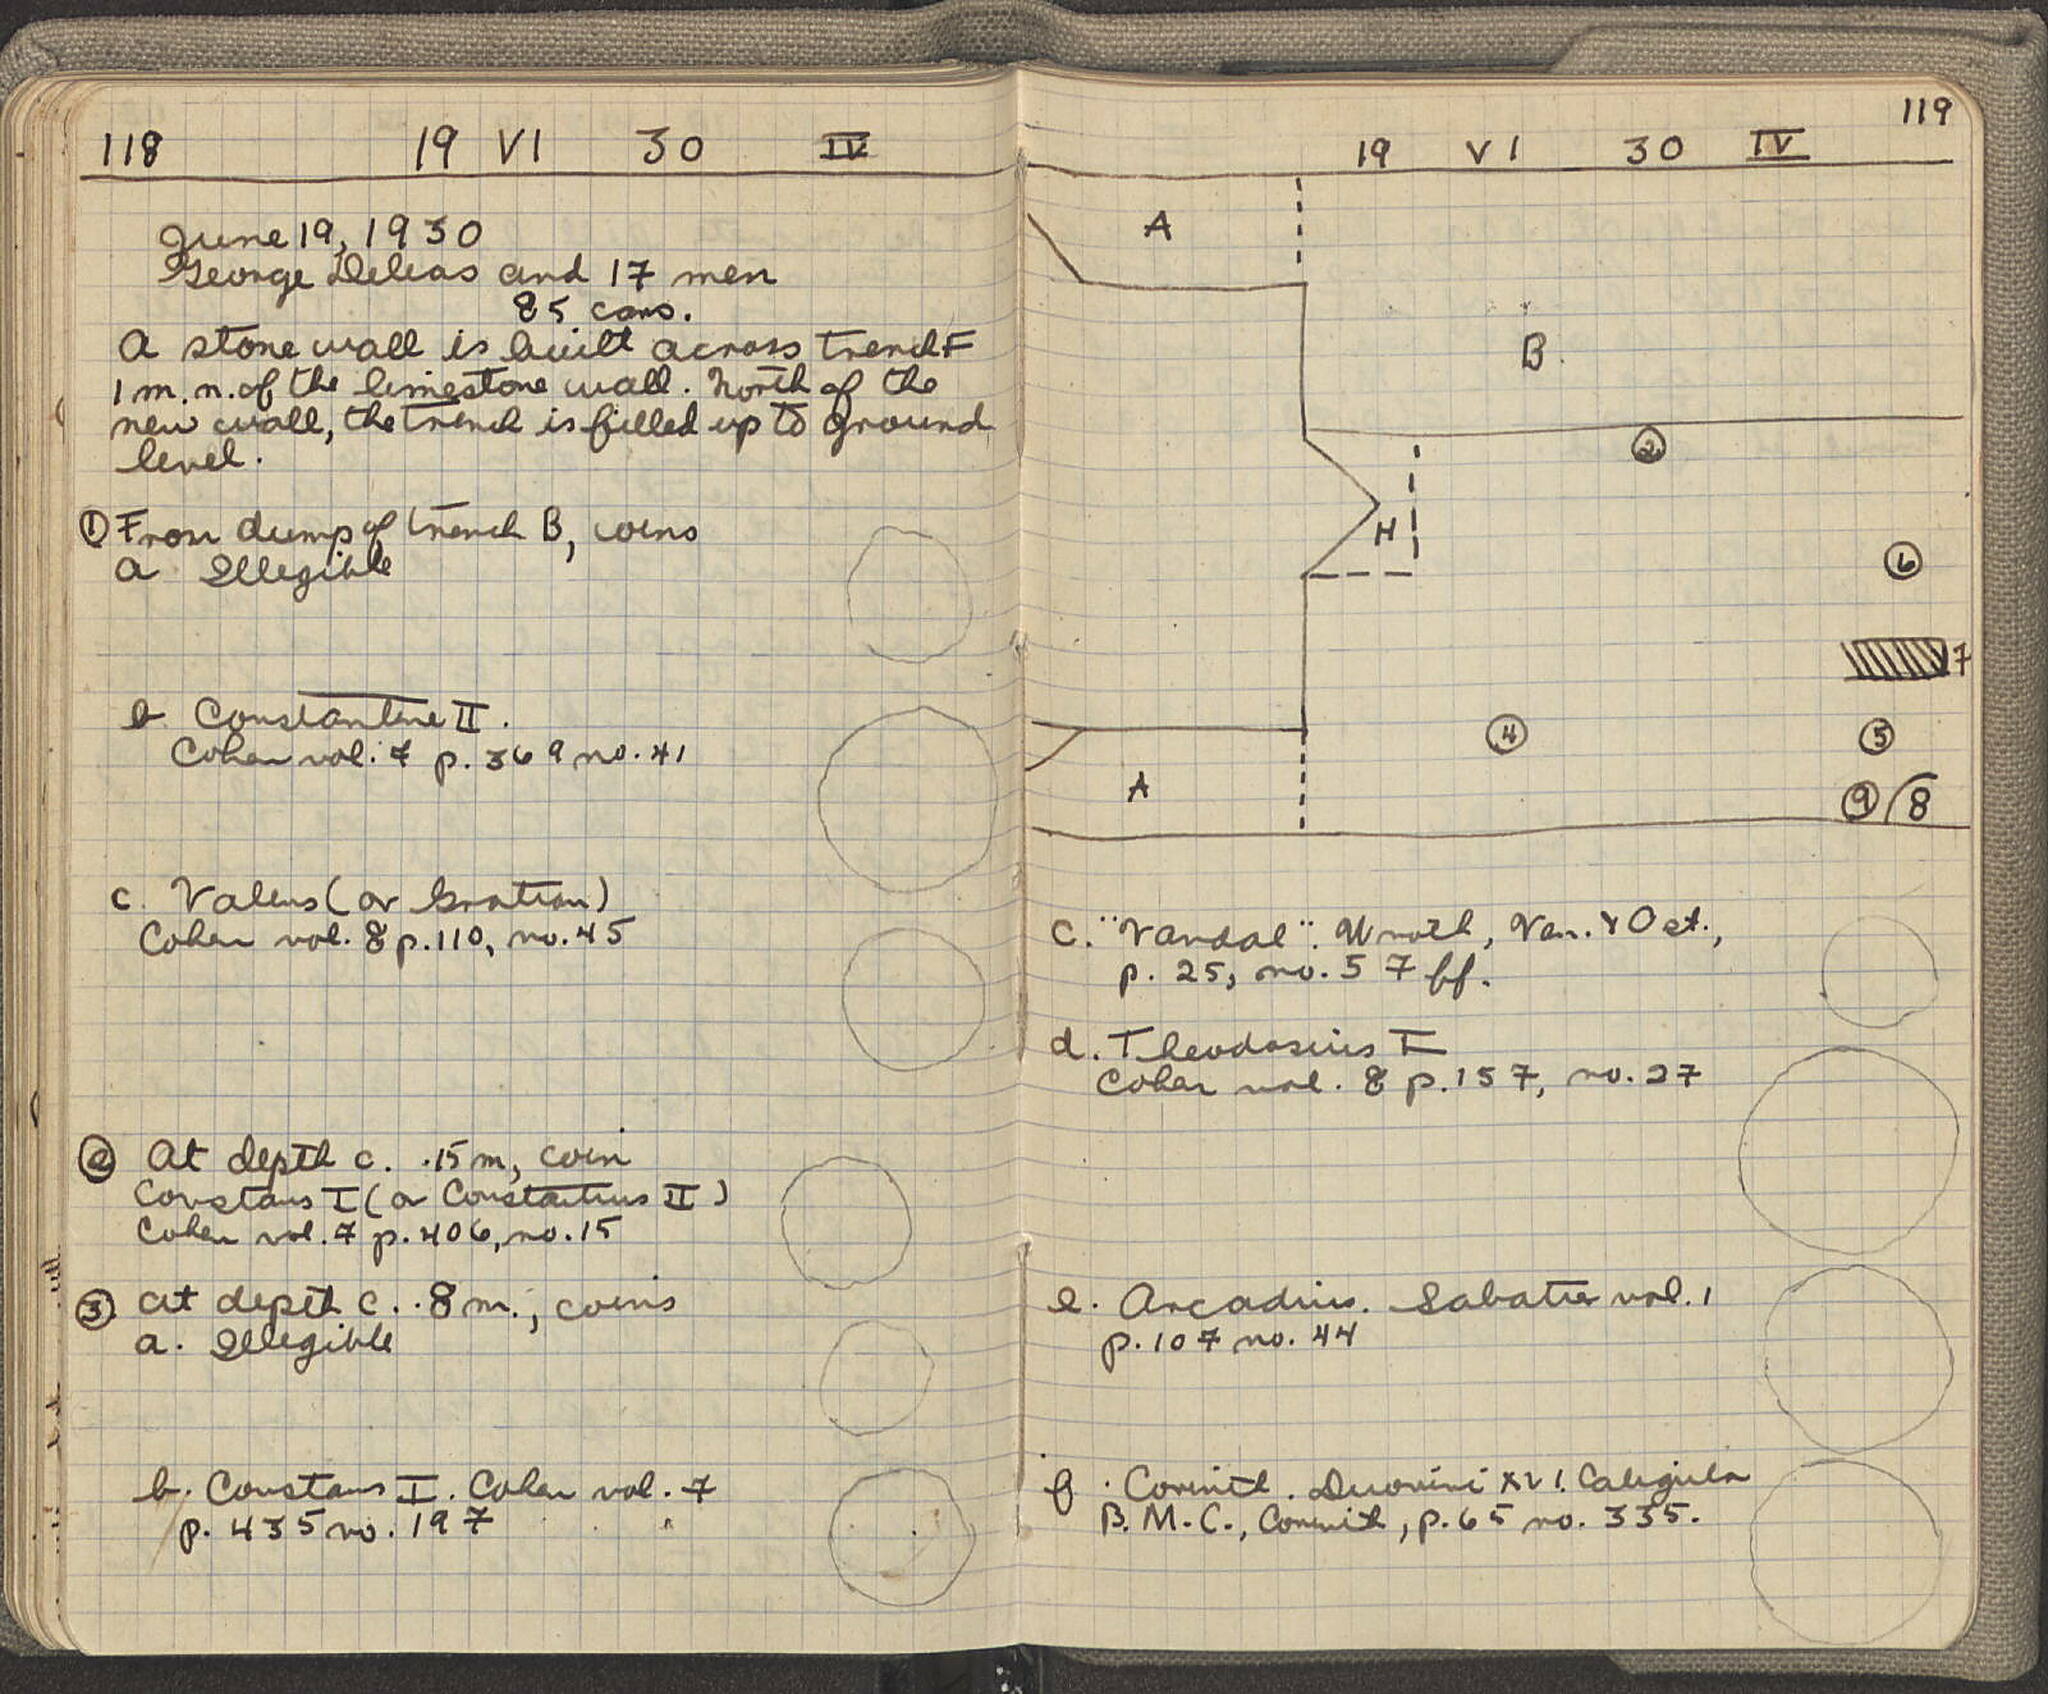 118 19 VI 30 IV
June 19, 1930
George Deleas and 17 men
85 cars.
A stone wall is built across trench F
1 m. n. of the limestone wall. North of the
new wall, the trench is filled up to ground
level.
① From dump of trench B, coins
a Illegible
b Constantine II.
Cohen vol. 7 p. 369 no. 41
c. Valens (or Gratian)
Cohen vol. 8 p. 110, no. 45
② At depth c. .15 m, coin
Constans I (or Constantius II)
Cohen vol. 7 p. 406, no. 15
③ At depth c. .8 m., coins
a. Illegible
b. Constans I. Cohen vol. 7
p. 435 no. 197
119
19 VI 30 IV
A
B.
②
H
⑥
7
④
⑤
A
⑨ 8
c. "Vandal". Wroth, Van. & Ost.,
p. 25, no. 57 ff.
d. Theodosius I
Cohen vol. 8 p. 157, no. 27
e. Arcadius. Sabatier vol. 1
p. 107 no. 44
f. Corinth. Duoviri XVI. Caligula
B.M.C., Corinth, p. 65 no. 335.